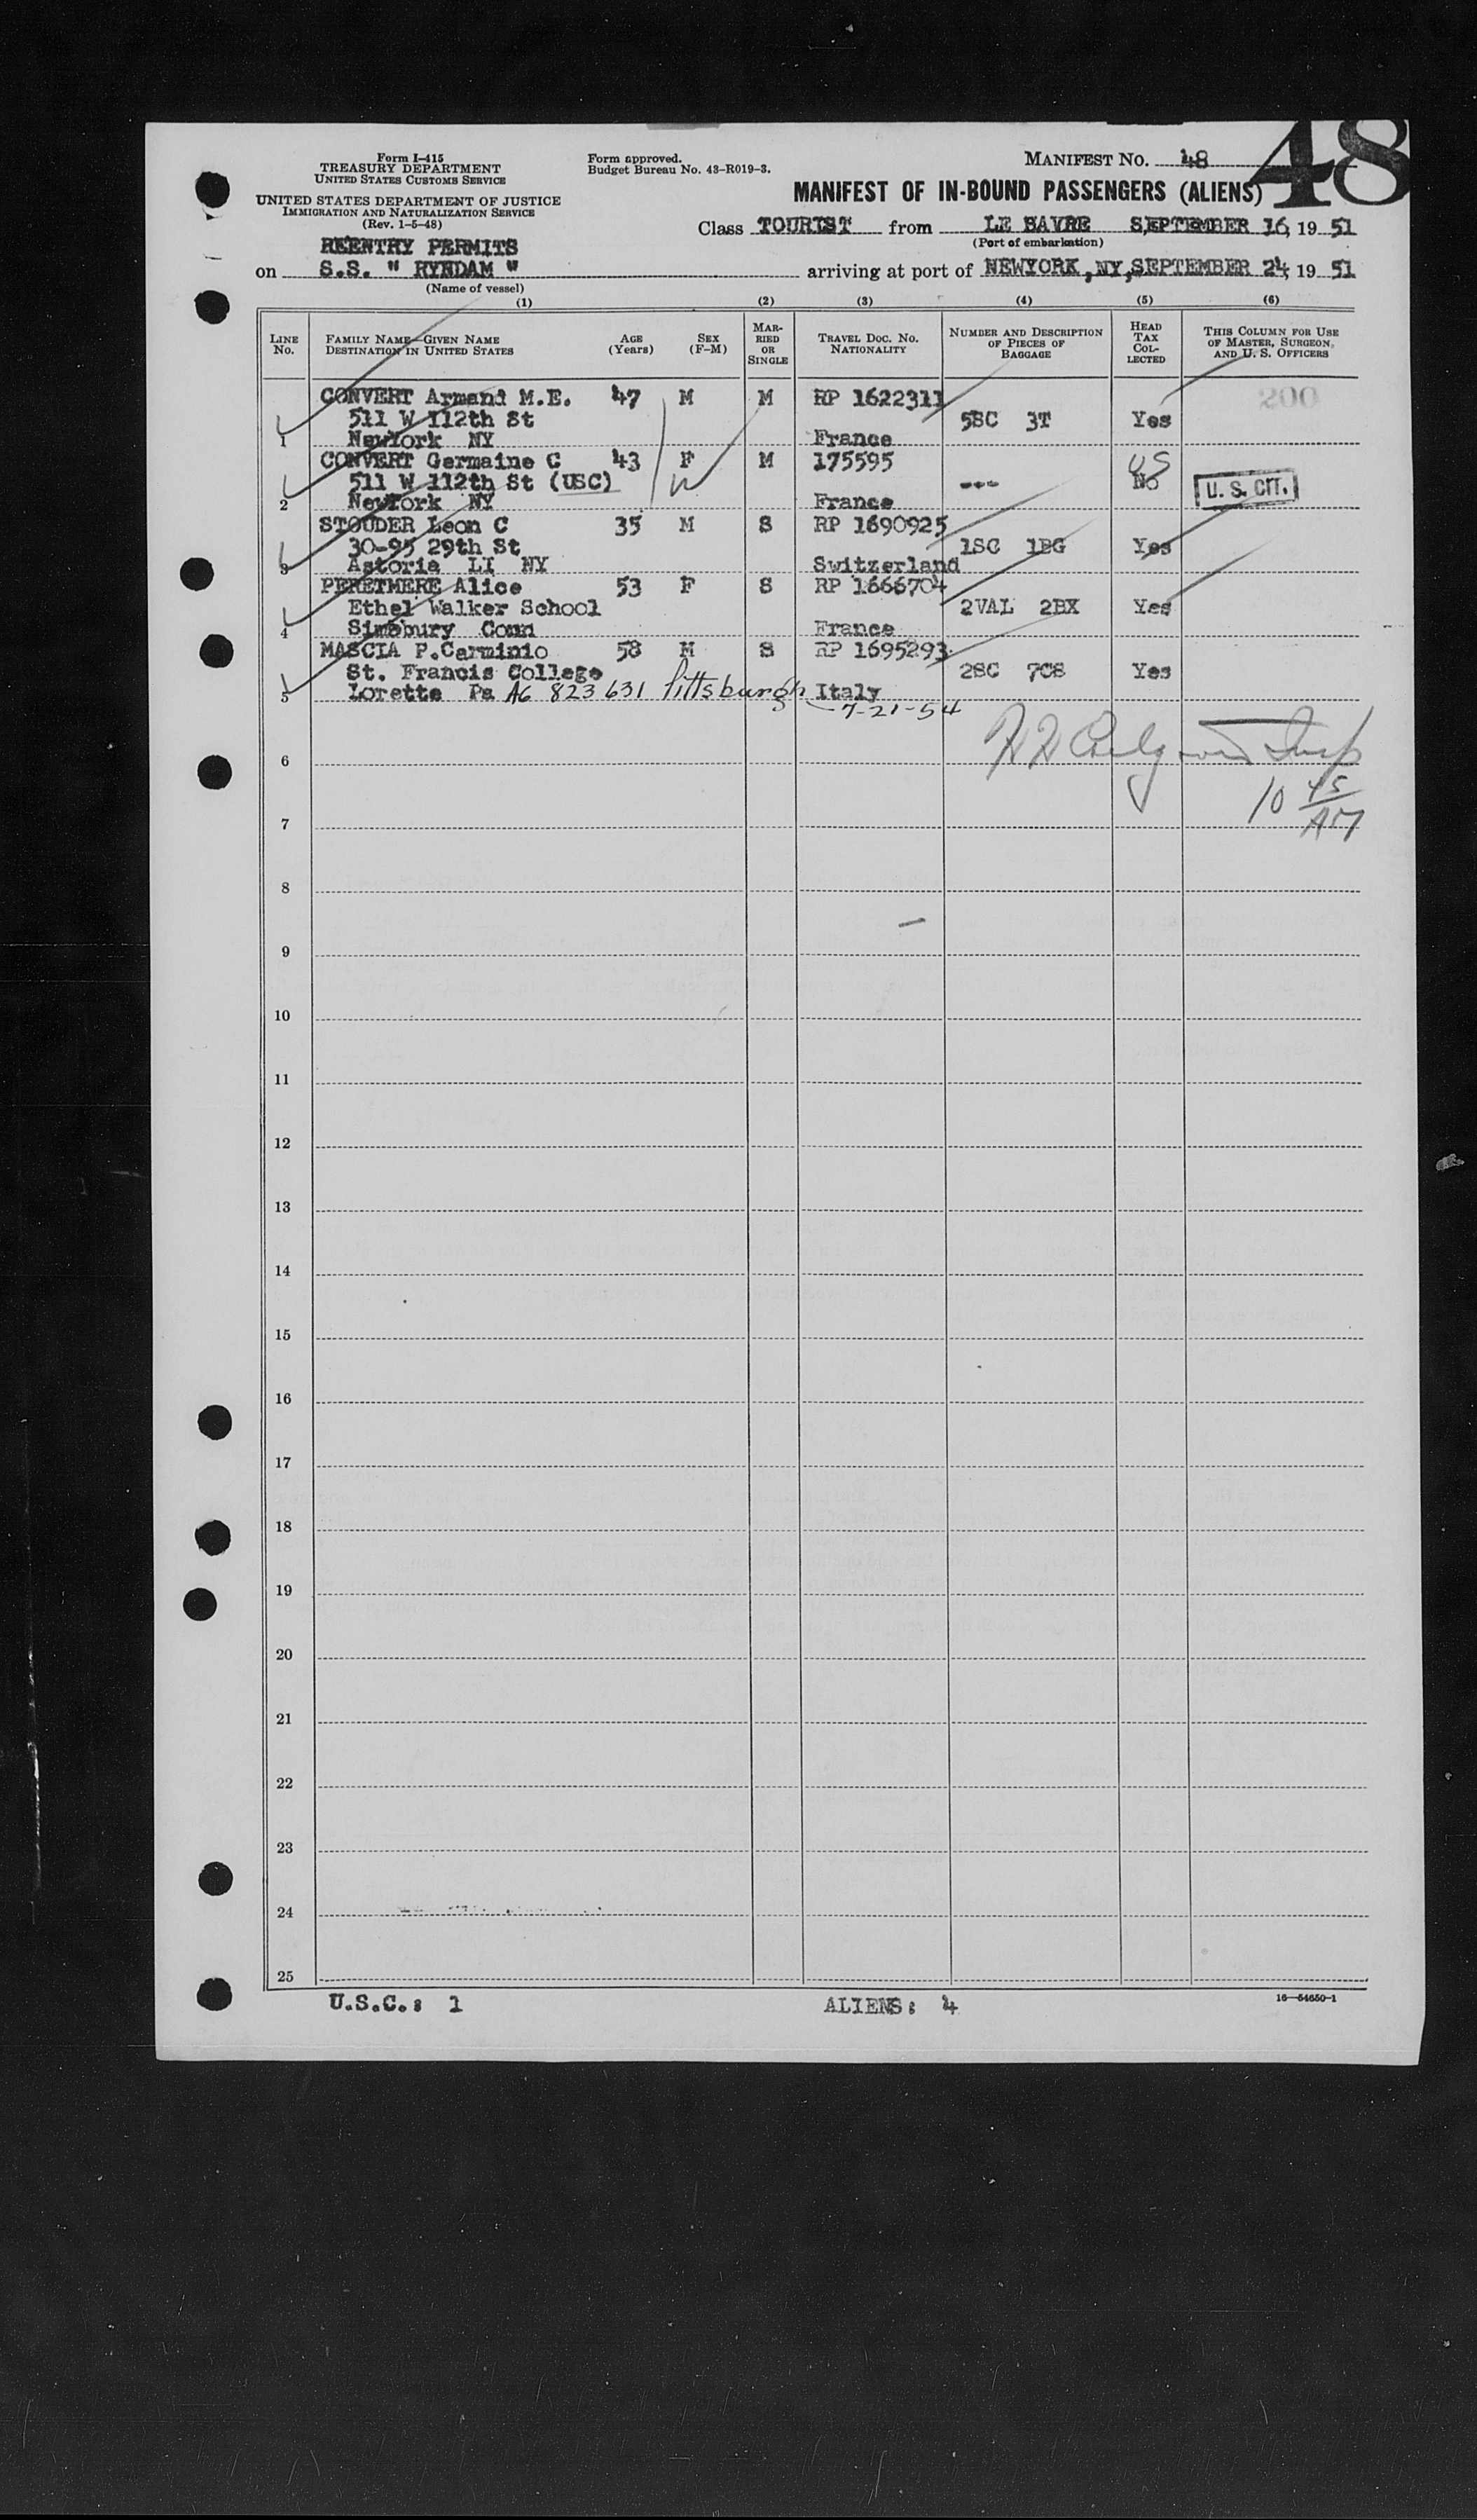 48
Form I-415
TREASURY DEPARTMENT
UNITED STATES CUSTOMS SERVICE
UNITED STATES DEPARTMENT OF JUSTICE
IMMIGRATION AND NATURALIZATION SERVICE
(Rev. 1-5-48)
Form approved.
Budget Bureau No. 43-R019-3.
MANIFEST No. 48
MANIFEST OF IN-BOUND PASSENGERS (ALIENS)
Class TOURIST from LE HAVRE SEPTEMBER 16, 19 51
(Port of embarkation)
REENTRY PERMITS
on S.S. " RYNDAM " arriving at port of NEWYORK, NY, SEPTEMBER 24, 19 51
(Name of vessel)
(1) (2) (3) (4) (5) (6)
LINE No. FAMILY NAME—GIVEN NAME DESTINATION IN UNITED STATES AGE (Years) SEX (F-M) MARRIED OR SINGLE TRAVEL DOC. NO. NATIONALITY NUMBER AND DESCRIPTION OF PIECES OF BAGGAGE HEAD TAX COLLECTED THIS COLUMN FOR USE OF MASTER, SURGEON, AND U. S. OFFICERS
CONVERT Armand M.E. 47 M M RP 1622311 200
511 W 112th St 5SC 3T Yes
1 NewYork NY France
CONVERT Germaine C 43 F M 175595 US
511 W 112th St (USC) --- No U. S. CIT.
2 NewYork NY France
STOUDER Leon C 35 M S RP 1690925
30-95 29th St 1SC 1BG Yes
3 Astoria LI NY Switzerland
PERETMERE Alice 53 F S RP 1666704
Ethel Walker School 2VAL 2BX Yes
4 Simsbury Conn France
MASCIA P.Carminio 58 M S RP 1695293
St. Francis College 2SC 7CS Yes
5 Lorette Pa A6 823 631 Pittsburgh Italy
7-21-54
6 Insp
10 45/AM
7
8
9
10
11
12
13
14
15
16
17
18
19
20
21
22
23
24
25
U.S.C.: 1 ALIENS: 4 16—54650-1